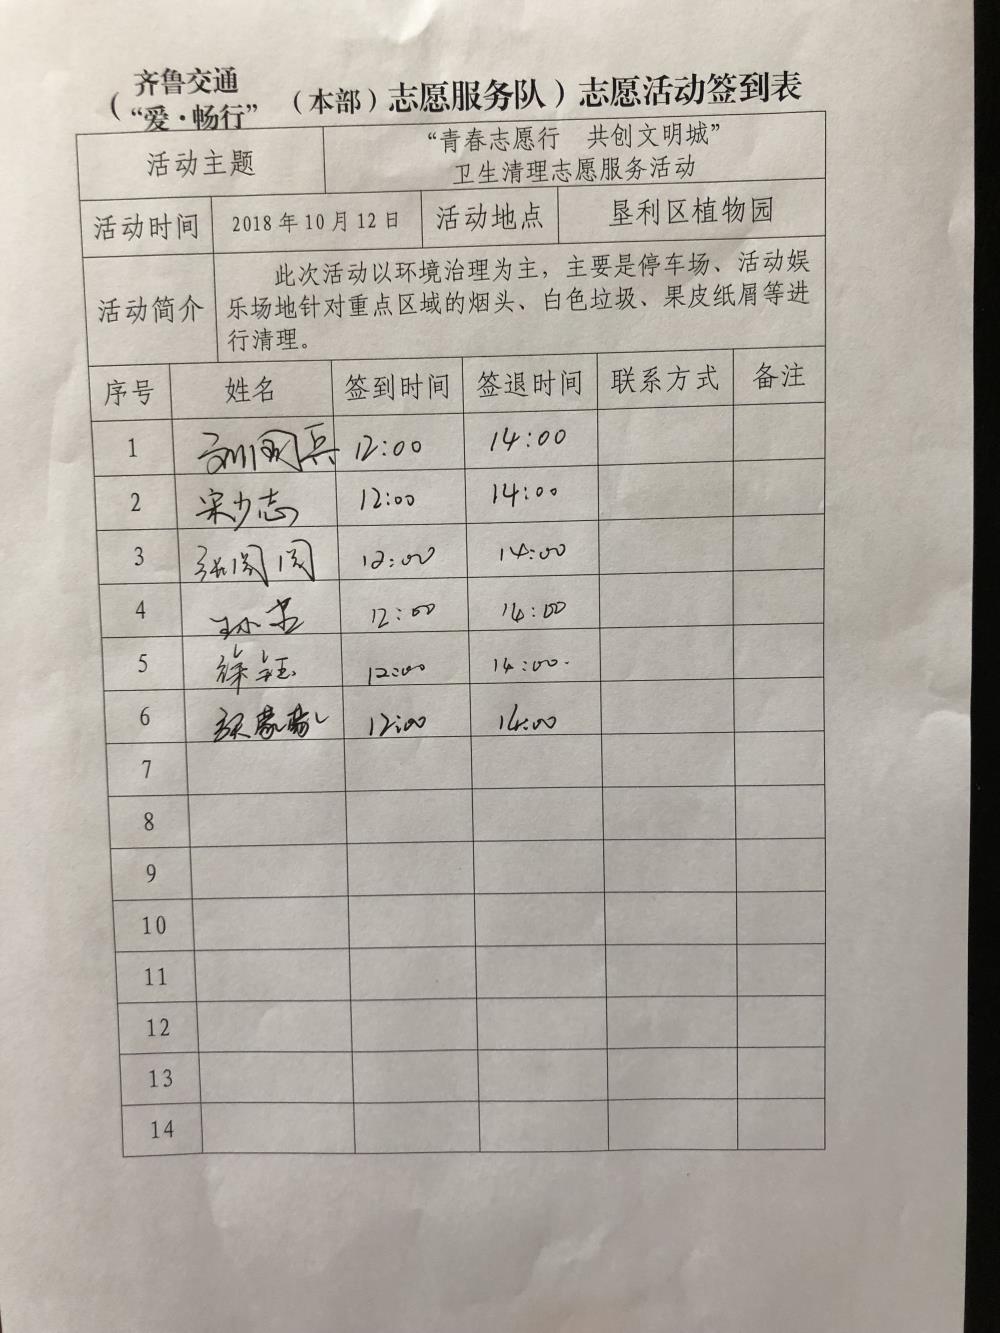 齐鲁交通
（“爱·畅行”（本部）志愿服务队）志愿活动签到表
活动主题 “青春志愿行 共创文明城”
卫生清理志愿服务活动
活动时间 2018年10月12日 活动地点 垦利区植物园
活动简介 此次活动以环境治理为主，主要是停车场、活动娱
乐场地针对重点区域的烟头、白色垃圾、果皮纸屑等进
行清理。
序号 姓名 签到时间 签退时间 联系方式 备注
1 刘国兵 12:00 14:00
2 宋少志 12:00 14:00
3 张闵闵 12:00 14:00
4 12:00 14:00
5 徐钰 12:00 14:00
6 12:00 14:00
7
8
9
10
11
12
13
14